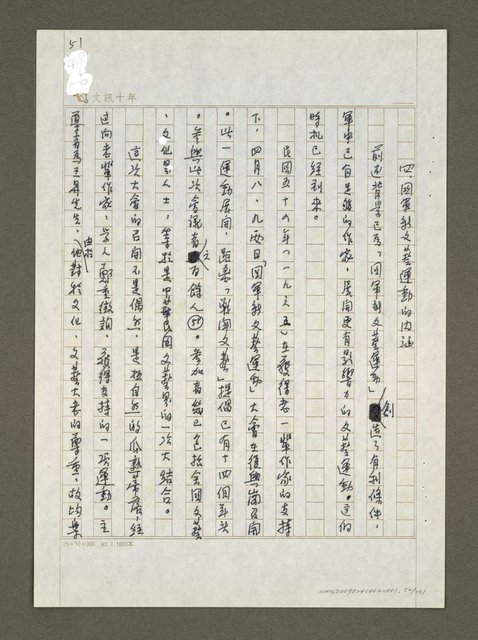 51
文訊十年
四、國軍新文藝運動的內涵
前述背景已為「國軍新文藝運動」創造了有利條件,
軍中已有足夠的作家,展開更有影響力的文藝運動。這個
時机已經到來。
民國五十四年(一九六五)在獲得老一輩作家的支持
下,四月八、九兩日「國軍新文藝運動」大會在復興崗召開
。此一運動展開,距離「戰鬥文藝」提倡已有十四個年頭
。參與此次會議者之百餘人(59)。參加者幾已包括全國文藝
、文化界人士,等於是中華民國文藝界的一次大結合。
這次大會的召開不是偶然,是極自然的瓜熟蒂落經
過向老輩作家,學人鄭重徵詢,獲得支持的一項運動。主
導者為王昇先生,由於他對於文化、文藝大老的尊重,故均樂
25×10=300 82.7.1000本
NMTL20090240002-001. 50/131